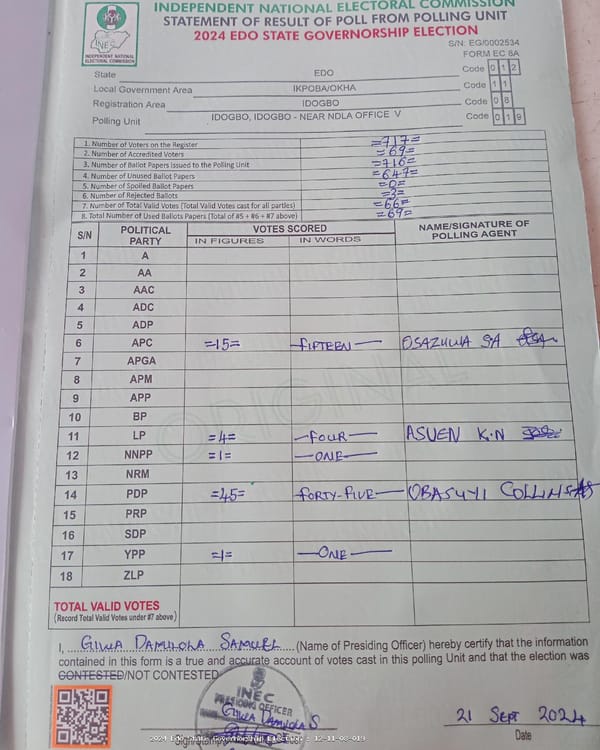 INDEPENDENT NATIONAL ELECTORAL COMMISSION
STATEMENT OF RESULT OF POLL FROM POLLING UNIT
2024 EDO STATE GOVERNORSHIP ELECTION
INEC
INDEPENDENT NATIONAL
ELECTORAL COMMISSION
S/N: EG/0002534
FORM EC 8A
State EDO Code 0 1 2
Local Government Area IKPOBA/OKHA Code 1 1
Registration Area IDOGBO Code 0 8
Polling Unit IDOGBO, IDOGBO - NEAR NDLA OFFICE V Code 0 1 9
1. Number of Voters on the Register =717=
2. Number of Accredited Voters =69=
3. Number of Ballot Papers issued to the Polling Unit =716=
4. Number of Unused Ballot Papers =647=
5. Number of Spoiled Ballot Papers =0=
6. Number of Rejected Ballots =3=
7. Number of Total Valid Votes (Total Valid Votes cast for all parties) =66=
8. Total Number of Used Ballots Papers (Total of #5 + #6 + #7 above) =69=
S/N POLITICAL PARTY VOTES SCORED NAME/SIGNATURE OF POLLING AGENT
IN FIGURES IN WORDS
1 A
2 AA
3 AAC
4 ADC
5 ADP
6 APC =15= FIFTEEN OSAZUWA SA
7 APGA
8 APM
9 APP
10 BP
11 LP =4= FOUR ASUEN K.N
12 NNPP =1= ONE
13 NRM
14 PDP =45= FORTY-FIVE OBASUYI COLLINS
15 PRP
16 SDP
17 YPP =1= ONE
18 ZLP
ORIGINAL
TOTAL VALID VOTES
(Record Total Valid Votes under #7 above)
I, GIWA DAMILOLA SAMUEL (Name of Presiding Officer) hereby certify that the information
contained in this form is a true and accurate account of votes cast in this polling Unit and that the election was
CONTESTED/NOT CONTESTED
INEC
PRESIDING OFFICER
GIWA DAMILOLA S
21 SEPT 2024
2024 Edo State Governorship Election : 12_11_08_019
Date